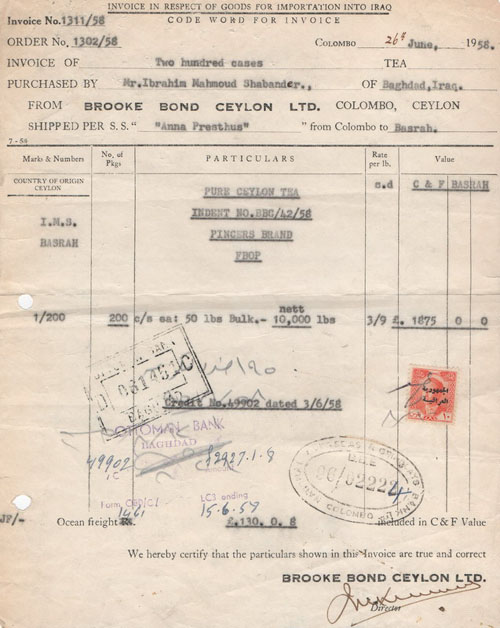 INVOICE IN RESPECT OF GOODS FOR IMPORTATION INTO IRAQ
Invoice No. 1311/58 CODE WORD FOR INVOICE
ORDER No. 1302/58 COLOMBO 26th June, 1958.
INVOICE OF Two hundred cases TEA
PURCHASED BY Mr.Ibrahim Mahmoud Shabander., OF Baghdad,Iraq.
FROM BROOKE BOND CEYLON LTD. COLOMBO, CEYLON
SHIPPED PER S.S. "Anna Presthus" " from Colombo to Basrah.
7-58
Marks & Numbers No. of Pkgs PARTICULARS Rate per lb. Value
COUNTRY OF ORIGIN CEYLON s.d C & F BASRAH
PURE CEYLON TEA
I.M.S. INDENT NO.BBG/42/58
BASRAH PINCERS BRAND
FBOP
nett
1/200 200 c/s ea: 50 lbs Bulk.- 10,000 lbs 3/9 £. 1875 0 0
BAGHDAD
الجمهورية
العراقية
Credit No.49902 dated 3/6/58
OTTOMAN BANK
BAGHDAD
49902
COLOMBO
LCS ending
15.6.59
1461
Ocean freight £.130. 0. 8 included in C & F Value
We hereby certify that the particulars shown in this Invoice are true and correct
BROOKE BOND CEYLON LTD.
Director